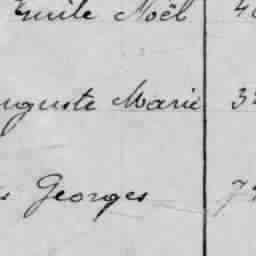 Emile Noël
uguste Marie 3
s Georges 7